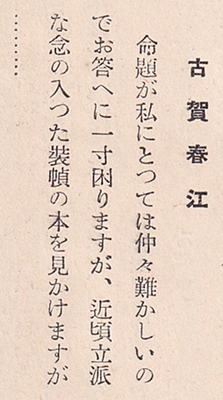 古賀春江
命題が私にとつては仲々難かしいの
でお答へに一寸困りますが、近頃立派
な念の入つた装幀の本を見かけますが
………